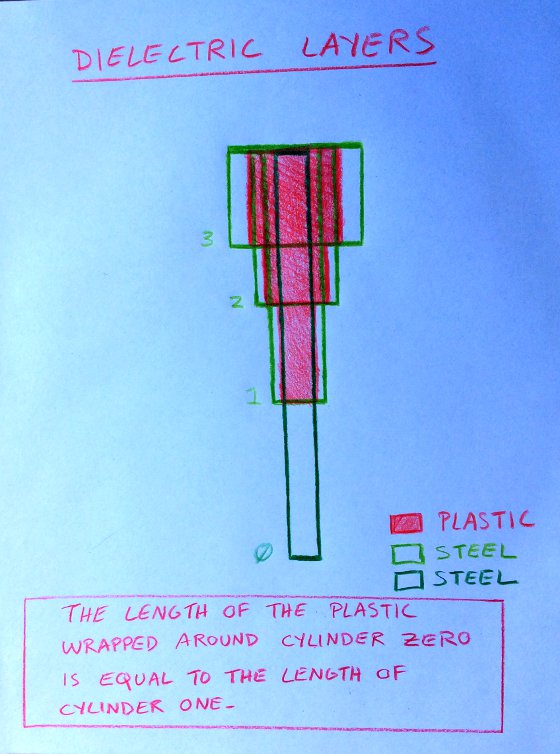 DIELECTRIC LAYERS
3
2
1
0
PLASTIC
STEEL
STEEL
THE LENGTH OF THE PLASTIC
WRAPPED AROUND CYLINDER ZERO
IS EQUAL TO THE LENGTH OF
CYLINDER ONE-